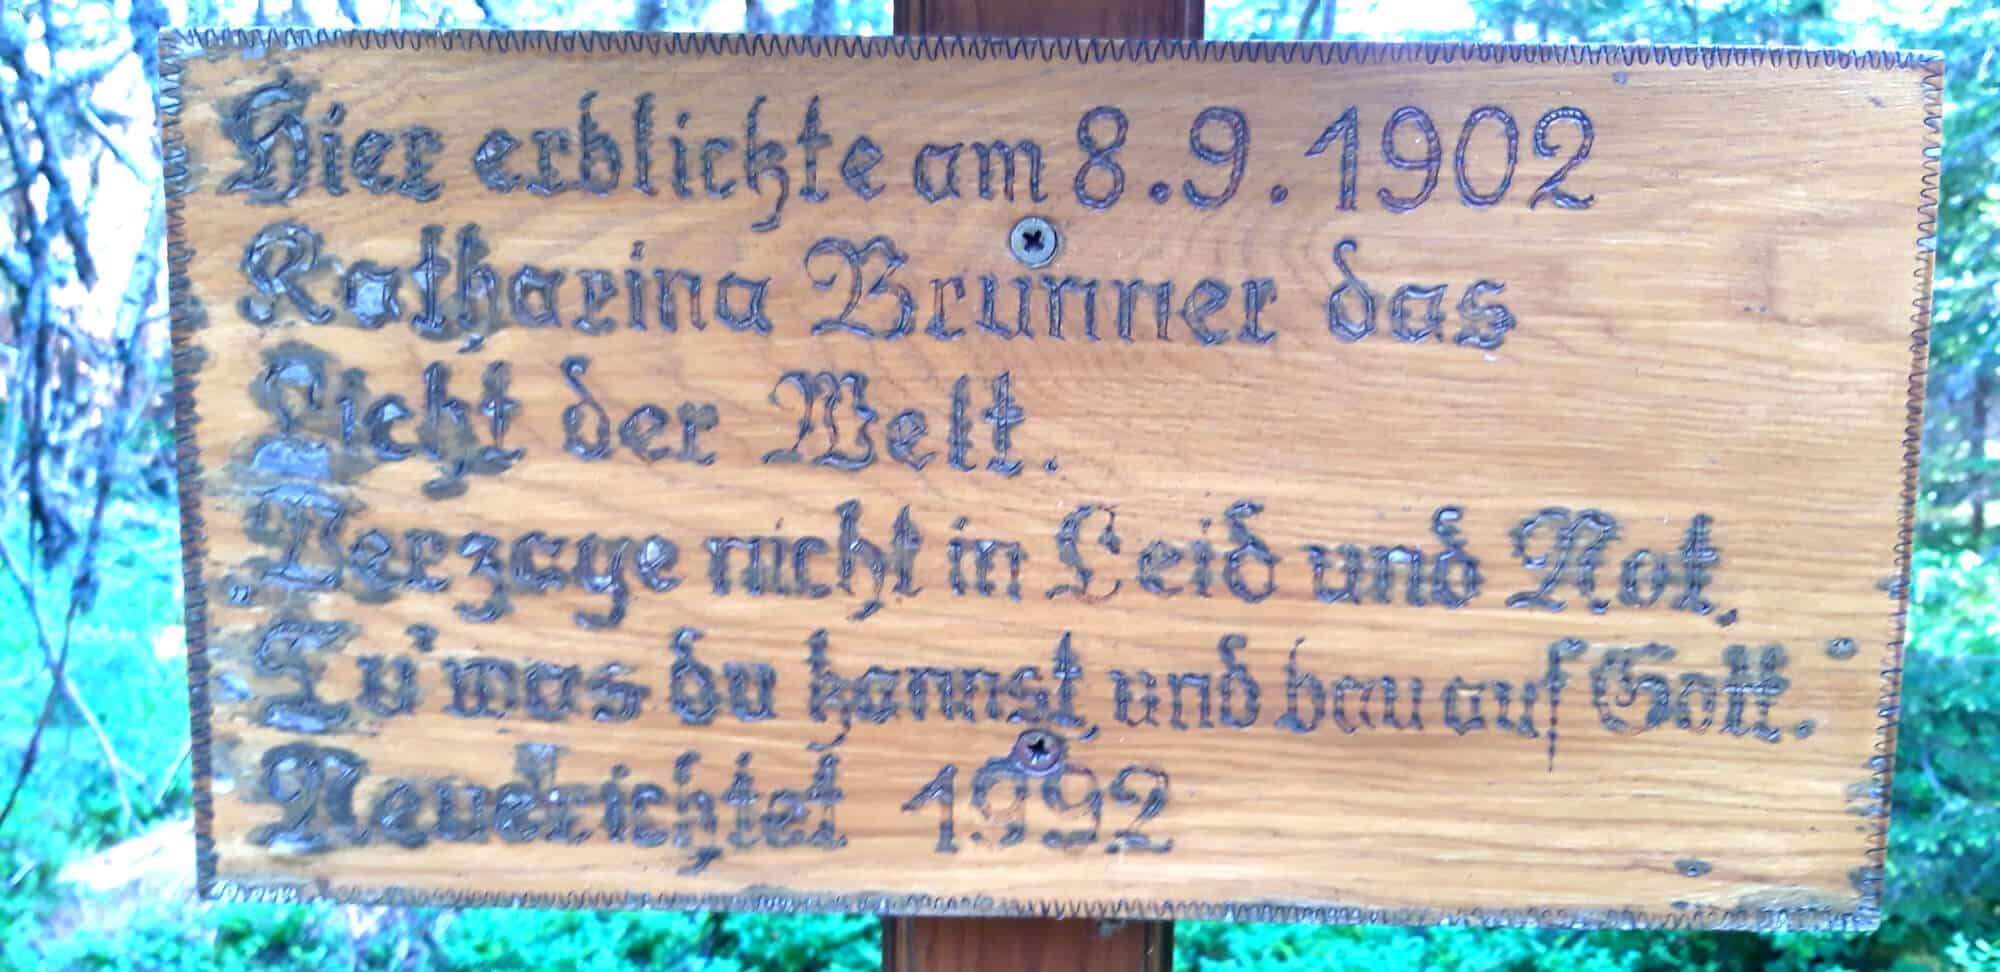 Hier erblickte am 8.9.1902
Katharina Brunner das
Licht der Welt.
„Verzage nicht in Leid und Not,
Tu' was du kannst und bau auf Gott."
Neuerrichtet 1992